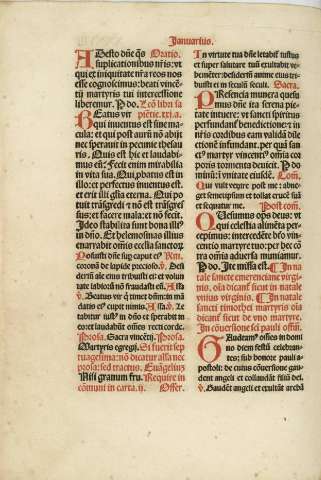 Januarius.
Adesto dñe q̃s Oratio.
suplicationibus nr̃is: vt
qui ex iniquitate nr̃a reos nos
esse cognoscimus: beati vincen-
tij martyris tui intercessione
liberemur. P do. Lcõ libri sa
Beatus vir piẽtie.xxj.a.
qui inuentus est sine ma
cula: et qui post aurũ nõ abijt
nec sperauit in pecunie thesau
ris. Quis est hic et laudabi-
mus eũ: fecit enim mirabilia
in vita sua. Qui ꝓbatus est in
illo: et perfectus inuentus est.
et erit illi gl̃ia eterna. Qui po
tuit trãsgredi et nõ est trãsgres
sus: et facere mala: et nõ fecit.
Ideo stabilita sunt bona illiꝰ
in dño. Et elemosinas illius
enarrabit om̃is ecclesia sanctoꝝ.
Posuisti dñe sup caput eiꝰ
coronã de lapide precioso. ℣. Desi
deriũ aĩe eius tribuisti ei: et volun
tate labioꝝ nõ fraudasti eũ. Alla.
℣. Beatus vir q̃ timet dñm: in mã
datis eiꝰ cupit nimis. Alla. ℣. Le
tabitur iustꝰ in dño et sperabit in eo:
et laudabũtur om̃es recti corde.
Prosa. Sacra vincẽtij. Prosa.
Martyris egregij. Si fuerit sep
tuagesima: nõ dicatur alla nec
prosa: sed tractus. Euangeliũ
Nisi granum fru. Require in
cõmuni in carta. ij. Offer.
In virtute tua dñe letabit̃ iustus
et super salutare tuũ exultabit ve
hemẽter: desideriũ anime eius tribu
isti ei in seculũ seculi. Sacra.
Presencia munera quesu-
mus dñe ita serena pieta
te intuere: vt sancti spiritus
perfundant̃ benedictione: et in
nr̃is cordibus eam valida dile
ctionẽ infundant. per quã san
ctꝰ martyr vincentꝰ om̃ia cor
poris tormenta deuicit. P do-
minũ: ĩ vnitate eiusdẽ. Com̃.
Qui vult venire post me: abne-
get semetipsum et tollat crucẽ suã
et sequatur me. Post com̃.
Quesumus om̃ps deus: vt
qui celestia alimẽta per-
cepimus: intercedẽte btõ vin
centio martyre tuo: per hec cõ
tra om̃ia aduersa muniamur.
P do. Ite missa est. ¶ In na
tale sancte emerenciane virgi-
nis. oĩa dicant̃ sicut in natale
vnius virginis. ¶ In natale
sancti timothei martyris oĩa
dicant̃ sicut de vno martyre.
In cõuersione sc̃i pauli offm̃.
Gaudeamꝰ om̃es in domi
no diem festũ celebran-
tes: sub honore pauli a-
postoli: de cuius cõuersione gau
dent angeli et collaudãt filiũ dei.
℣. Gaudẽt angeli et exultãt archã